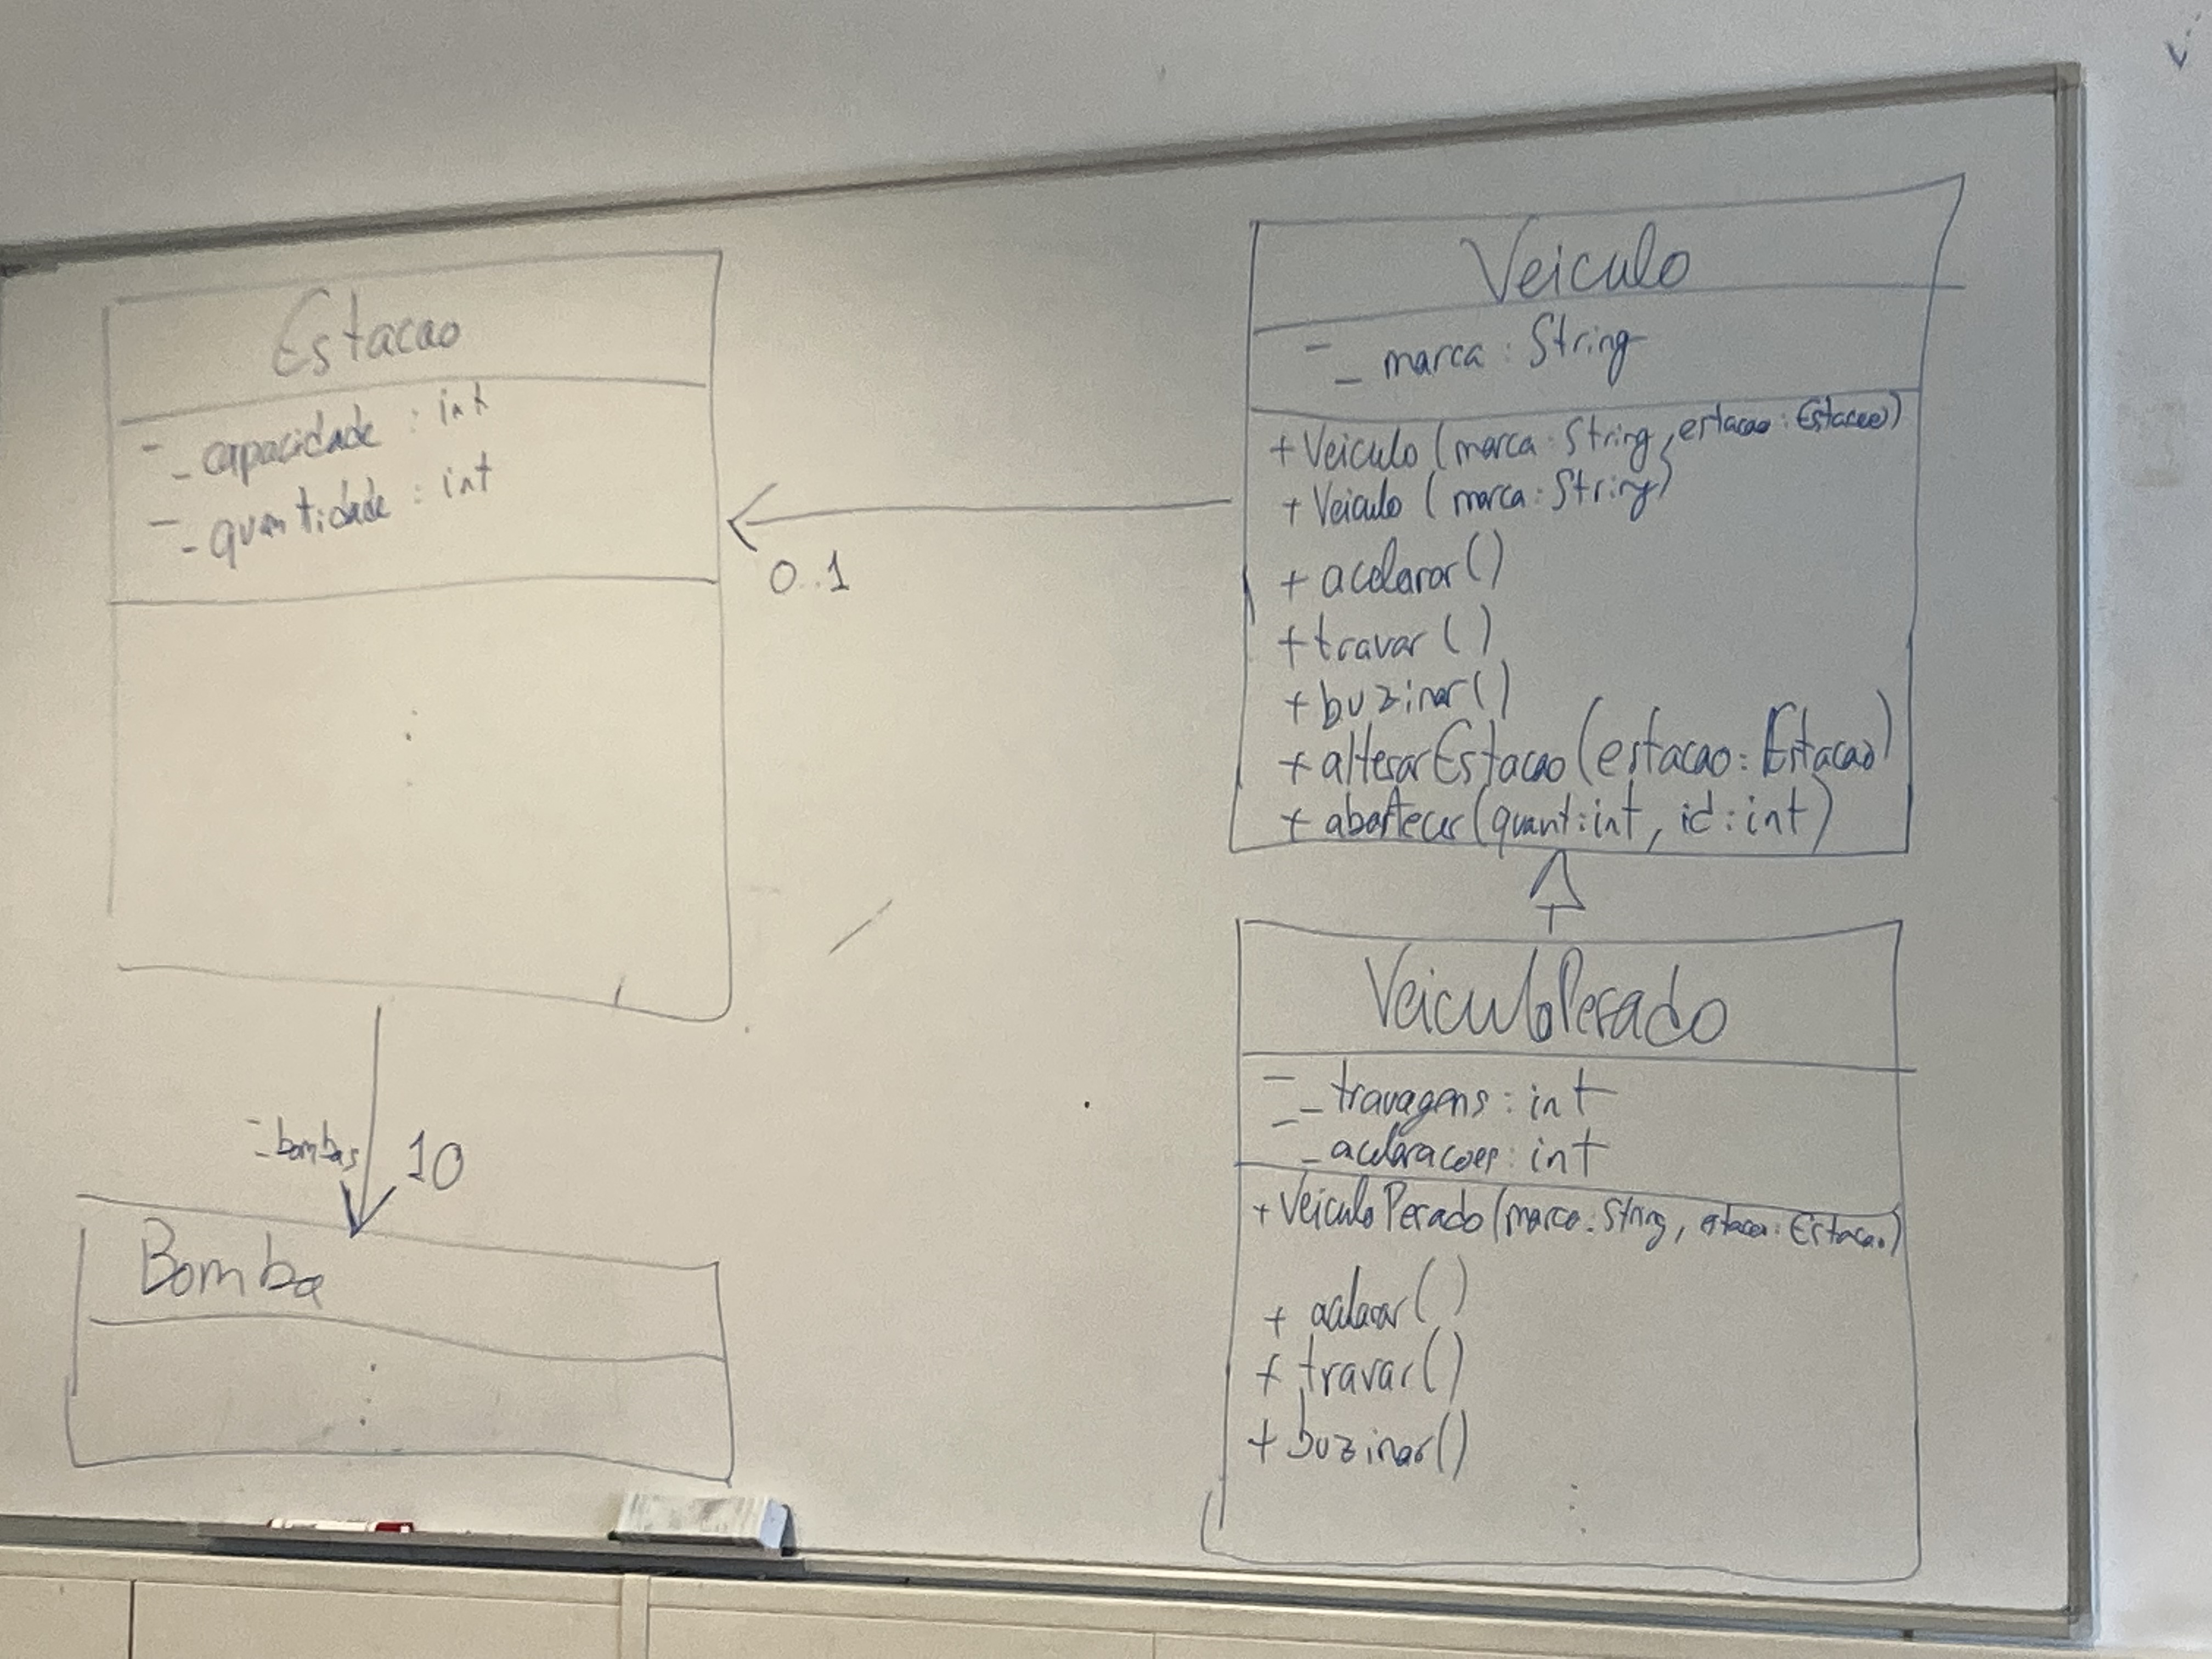 Estacao
- _capacidade : int
- _quantidade : int
0..1
- _bombas
10
Bomba
Veiculo
- _marca : String
+ Veiculo (marca : String, estacao : Estacao)
+ Veiculo (marca : String)
+ acelarar()
+ travar ()
+ buzinar()
+ alterarEstacao (estacao : Estacao)
+ abastecer (quant : int, id : int)
VeiculoPesado
- _travagens : int
- _aceleracoes : int
+ VeiculoPesado (marca : String, estacao : Estacao)
+ acelarar()
+ travar()
+ buzinar()